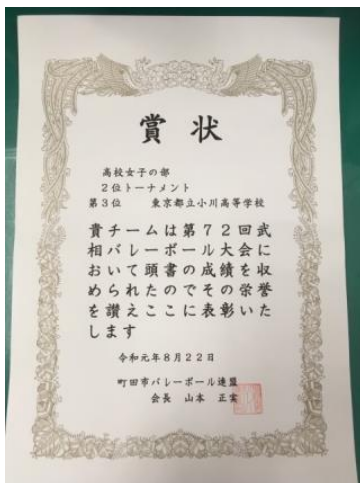 賞状
高校女子の部
2位トーナメント
第3位 東京都立小川高等学校
貴チームは第72回武
相バレーボール大会に
おいて頭書の成績を収
められたのでその栄誉
を讃えここに表彰いた
します
令和元年8月22日
町田市バレーボール連盟
会長 山本 正実